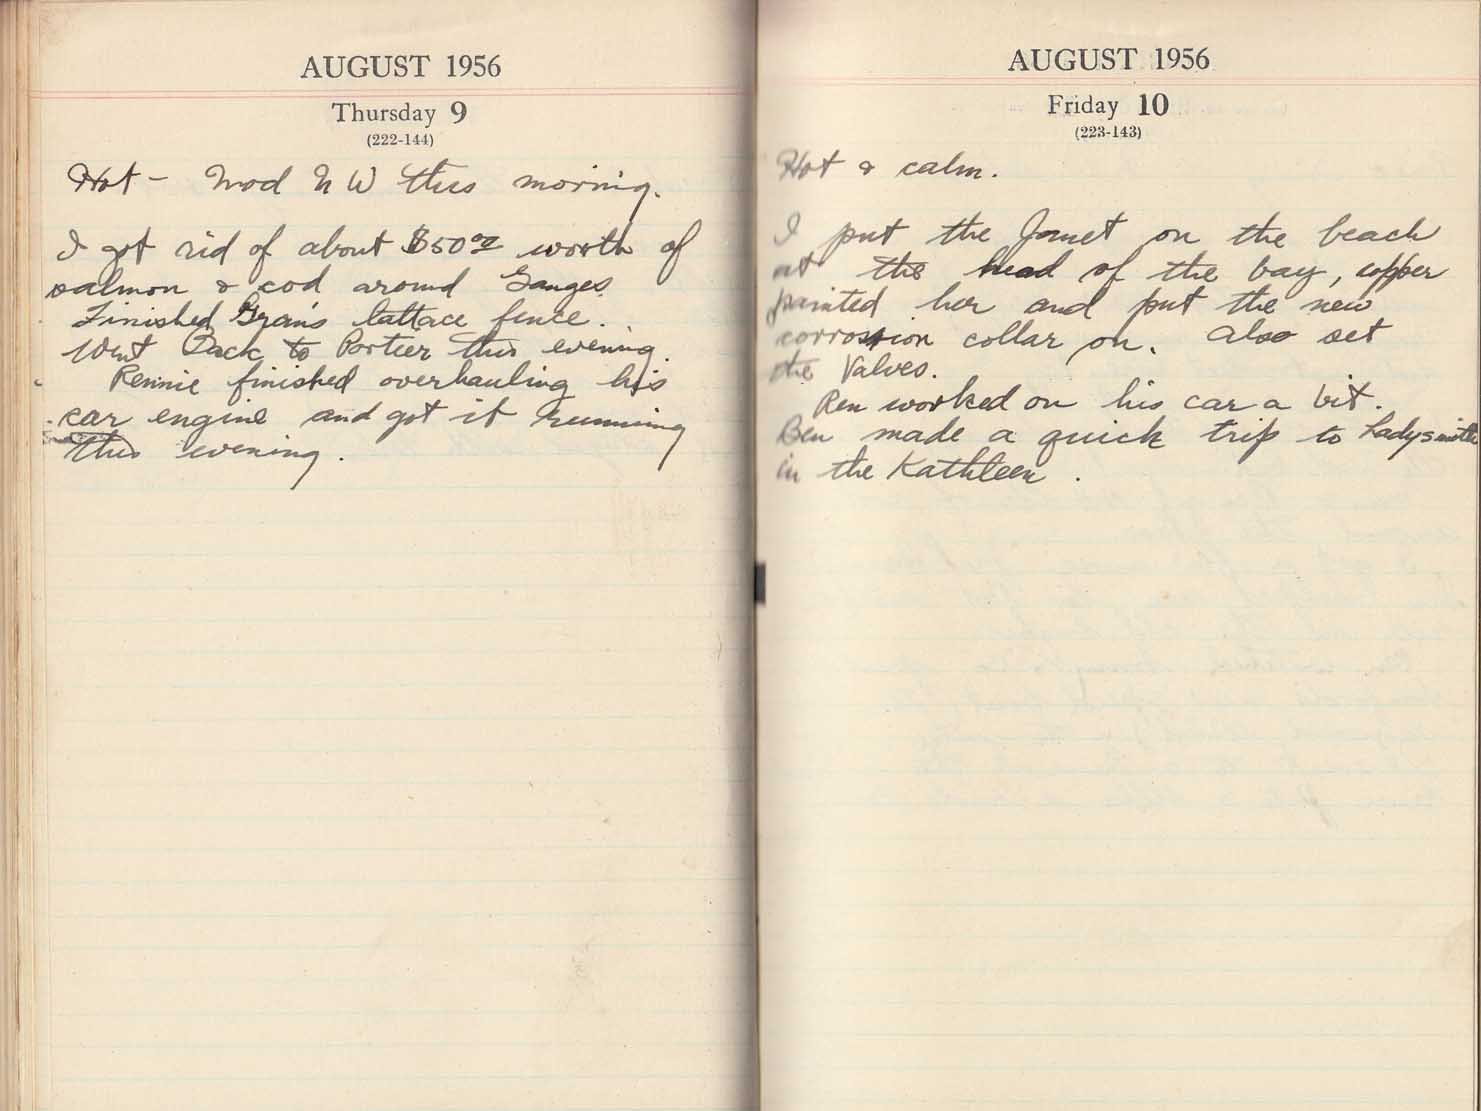 AUGUST 1956
Thursday 9
(222-144)
Hot - Mod N W this morning.
I got rid of about $50.00 worth of
salmon & cod around Ganges.
Finished Gran's lattace fence.
Went Back to Portier this evening.
Rennie finished overhauling his
car engine and got it running
this evening.
AUGUST 1956
Friday 10
(223-143)
Hot & calm.
I put the Janet on the beach
at the head of the bay, copper
painted her and put the new
corrosion collar on. Also set
the Valves.
Ren worked on his car a bit.
Ben made a quick trip to Ladysmith
in the Kathleen.